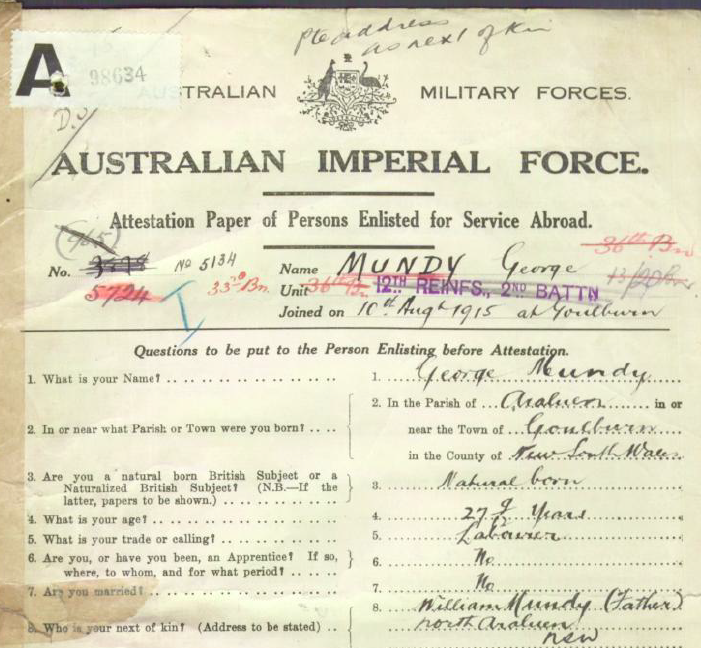 Pte address
as next of kin
A 98634
AUSTRALIAN MILITARY FORCES.
AUSTRALIAN IMPERIAL FORCE.
Attestation Paper of Persons Enlisted for Service Abroad.
(965) 36th Bn
No. No 5134 Name MUNDY George
5724 33rd Bn. Unit 36th Bn 12TH REINFS., 2ND BATTN
Joined on 10th Augt 1915 at Goulburn
Questions to be put to the Person Enlisting before Attestation.
1. What is your Name? 1. George Mundy
2. In or near what Parish or Town were you born? 2. In the Parish of Araluen in or
near the Town of Goulburn
in the County of New South Wales
3. Are you a natural born British Subject or a
Naturalized British Subject? (N.B.—If the
latter, papers to be shown.) 3. Natural born
4. What is your age? 4. 27 Years
5. What is your trade or calling? 5. Labourer
6. Are you, or have you been, an Apprentice? If so,
where, to whom, and for what period? 6. No
7. Are you married? 7. No
8. Who is your next of kin? (Address to be stated) 8. William Mundy (Father)
North Araluen
NSW